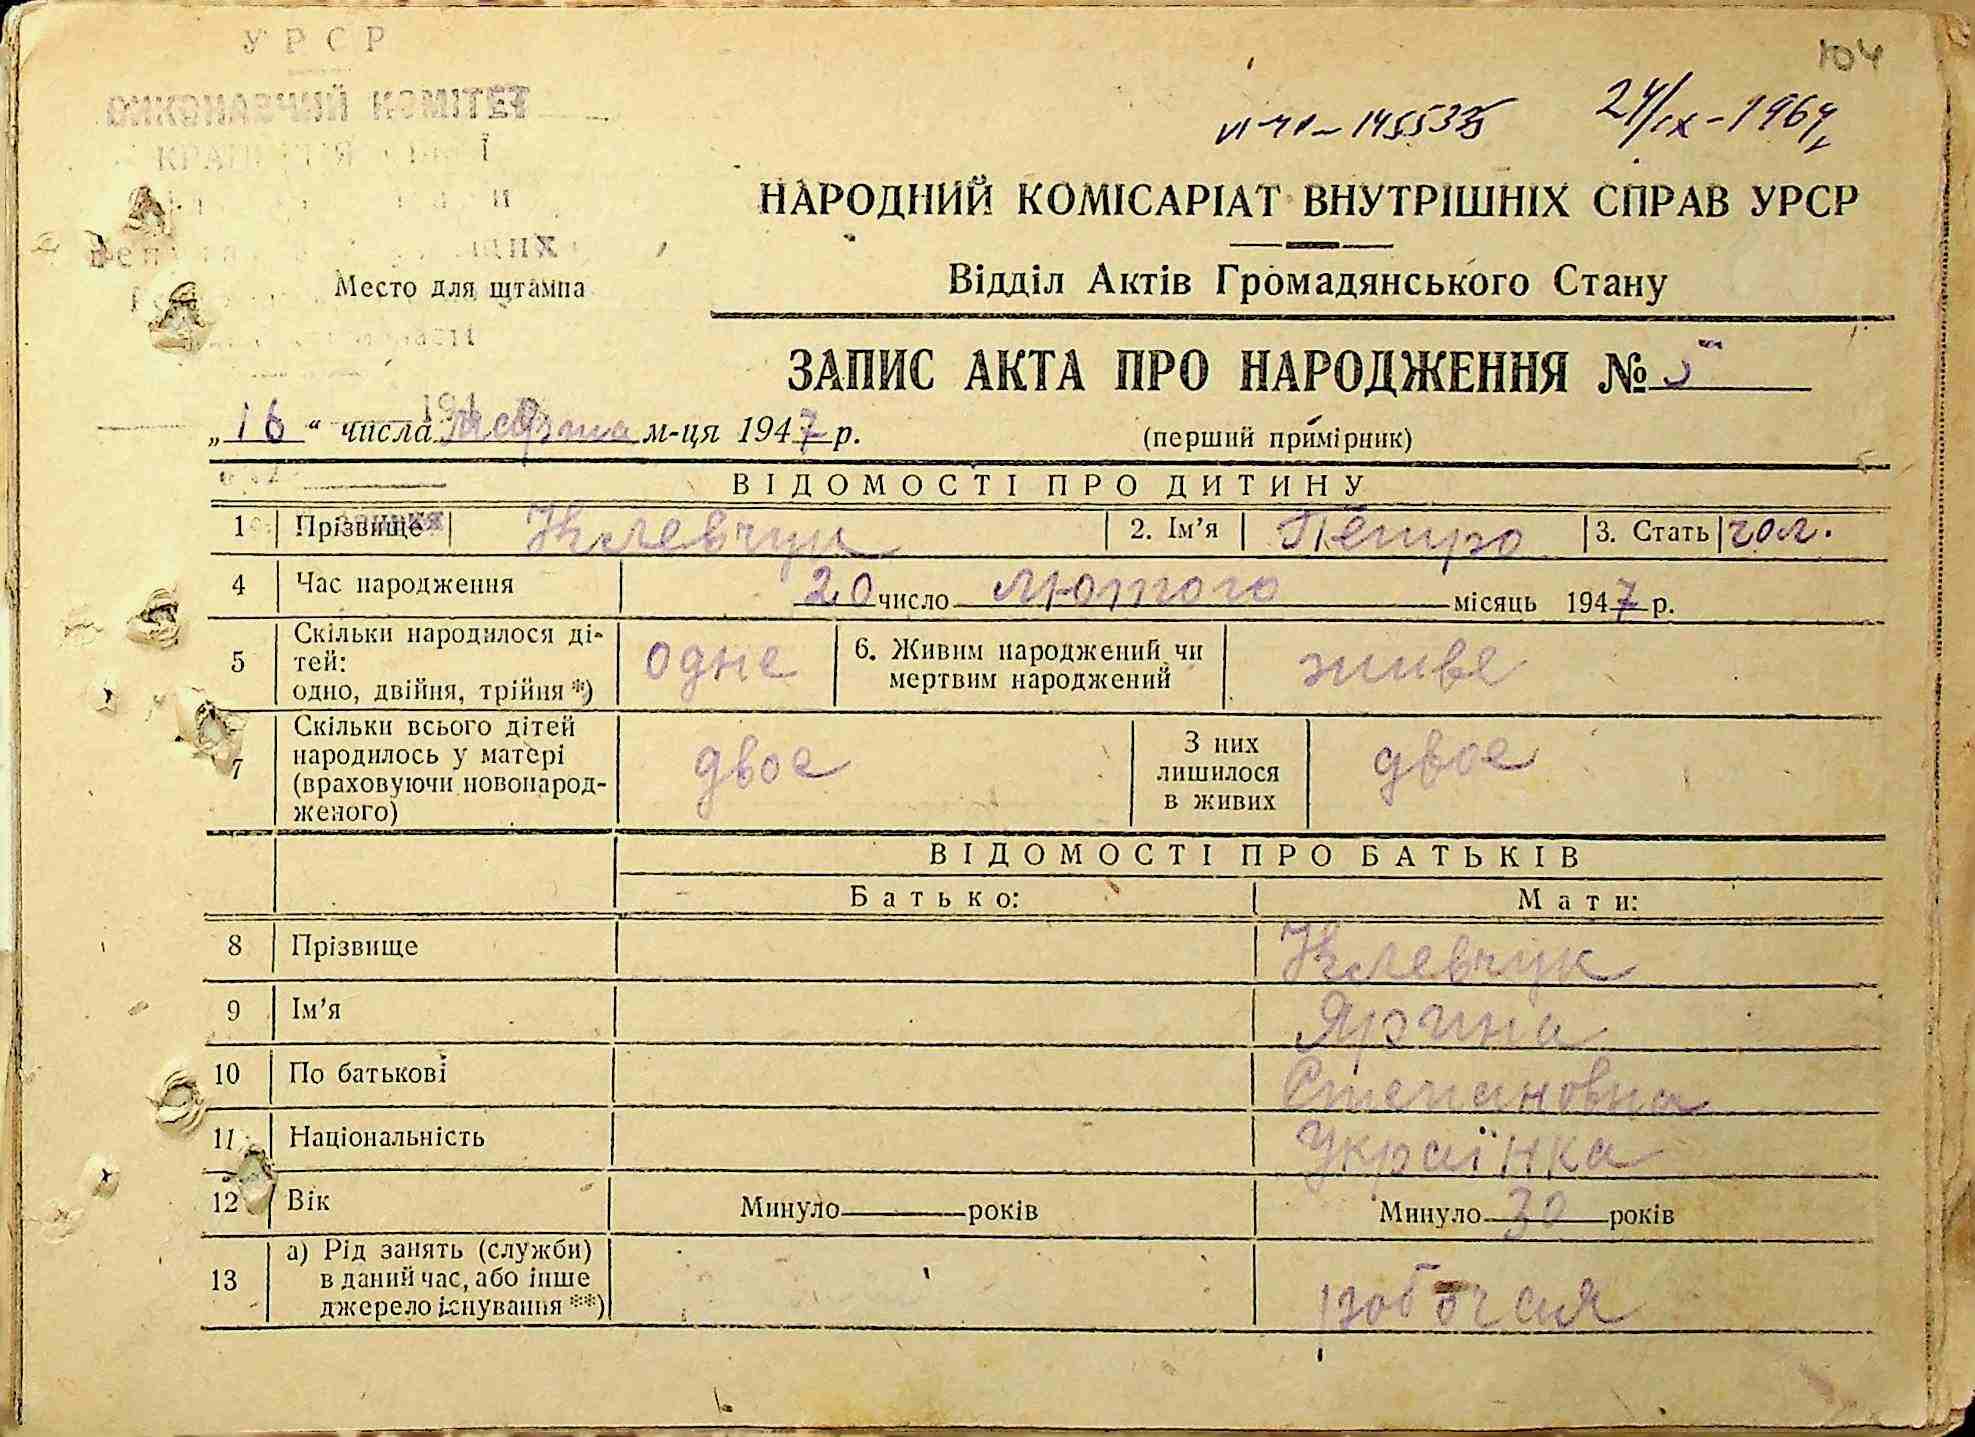 УРСР
ВИКОНАВЧИЙ КОМІТЕТ
104
24/ІХ-1964
НАРОДНИЙ КОМІСАРІАТ ВНУТРІШНІХ СПРАВ УРСР
Место для штампа
Відділ Актів Громадянського Стану
ЗАПИС АКТА ПРО НАРОДЖЕННЯ № 5
„16“ числа марта м-ця 1947 р.
(перший примірник)
ВІДОМОСТІ ПРО ДИТИНУ
1 Прізвище Клевчук 2. Ім'я Петро 3. Стать чол.
4 Час народження 20 число лютого місяць 1947 р.
5 Скільки народилося ді-
тей:
одно, двійня, трійня *)
одне
6. Живим народжений чи
мертвим народжений
живе
7 Скільки всього дітей
народилось у матері
(враховуючи новонарод-
женого)
двое
З них
лишилося
в живих
двое
ВІДОМОСТІ ПРО БАТЬКІВ
Батько: Мати:
8 Прізвище Клевчук
9 Ім'я Ярина
10 По батькові Степановна
11 Національність Українка
12 Вік Минуло років Минуло 30 років
13 а) Рід занять (служби)
в даний час, або інше
джерело існування **)
робочая